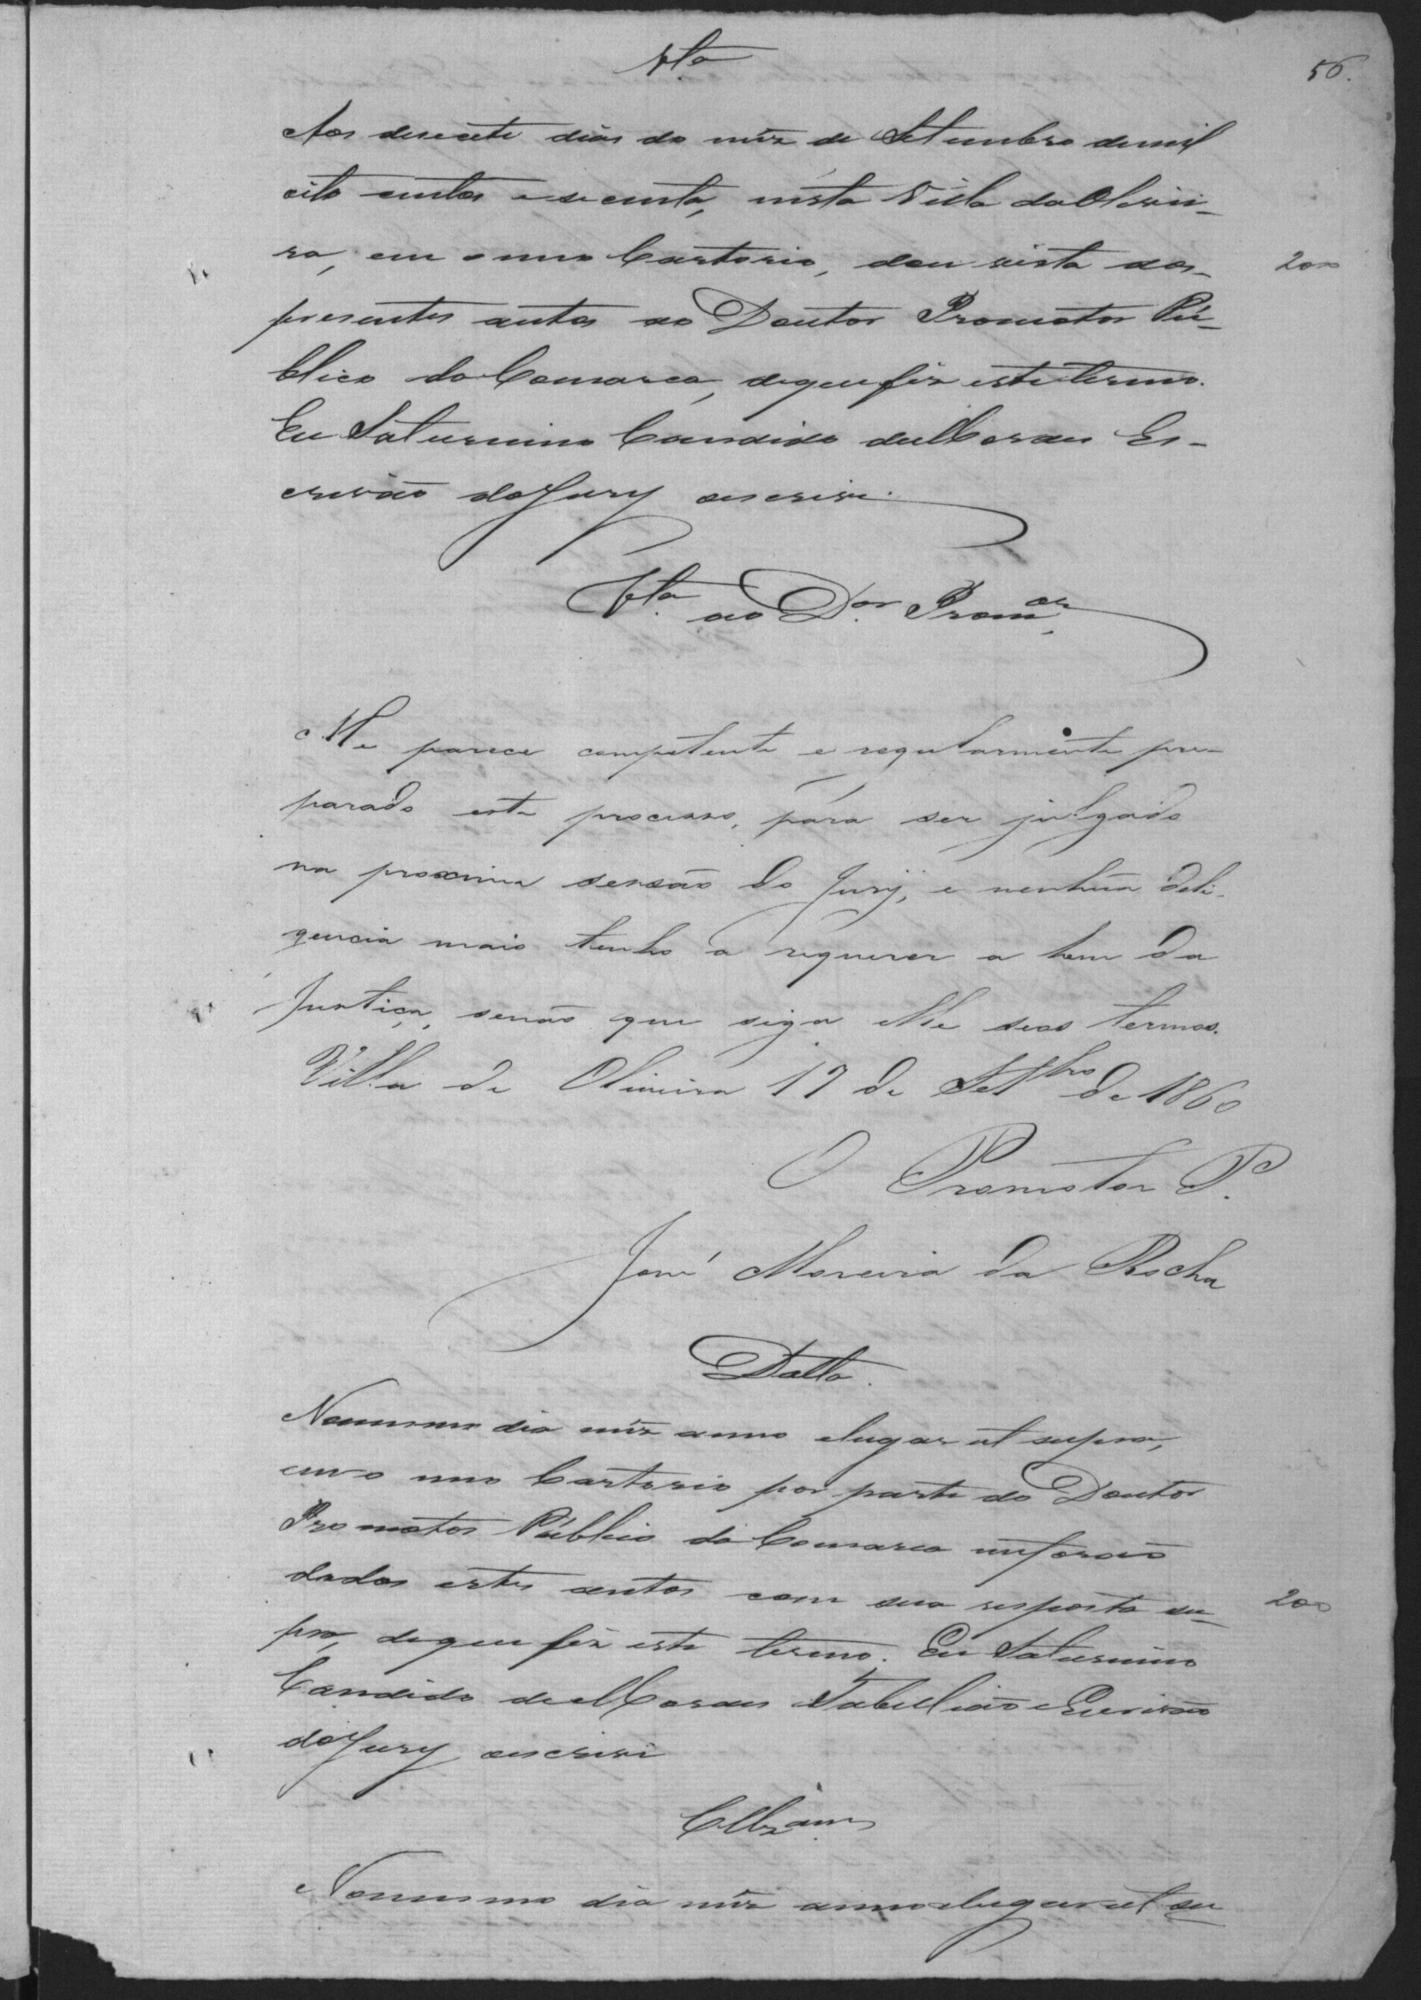 Vta
56.
Aos desecete dias do mez de Setembro de mil
oito centos e secenta, nesta Villa da Olivei-
ra, em o meu Cartorio, dou vista dos
200
presentes autos ao Doutor Promotor Pu-
blico da Comarca, de que fiz este termo.
Eu Saturnino Candido de Moraes Es-
crivão do Jury o escrivi.
Vta. ao Dor. Promor.
Me parece competente e regularmente pre-
parado este processo, para ser julgado
na proxima sessão do Jury, e nenhũa deli-
gencia mais tenho a requerer a bem da
Justiça, senão que siga elle seos termos.
Villa de Oliveira 17 de Setbro de 1860
O Promotor P.
José Moreira da Rocha
Datta.
No mesmo dia mez anno e lugar ut supra,
em o meo Cartorio por parte do Doutor
Promotor Publico da Comarca me forão
dados estes autos com sua resposta su-
200
pra, de que fiz este termo. Eu Saturnino
Candido de Moraes Tabellião e Escrivão
do Jury o escrivi
Clzam
No mesmo dia mez anno e lugar ut su